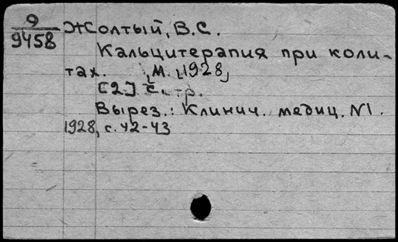 9
9458
Жолтый, В.С.
Кальцитерапия при коли-
тах. М., 1928,
[2] с. стр.
Вырез.: Клинич. медиц. №1.
1928, с. 42-43